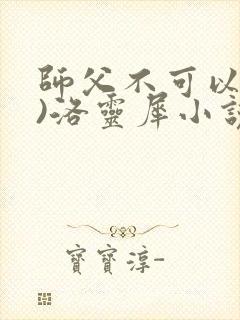 師父不可以
)-洛靈犀小說
寶寶淳-